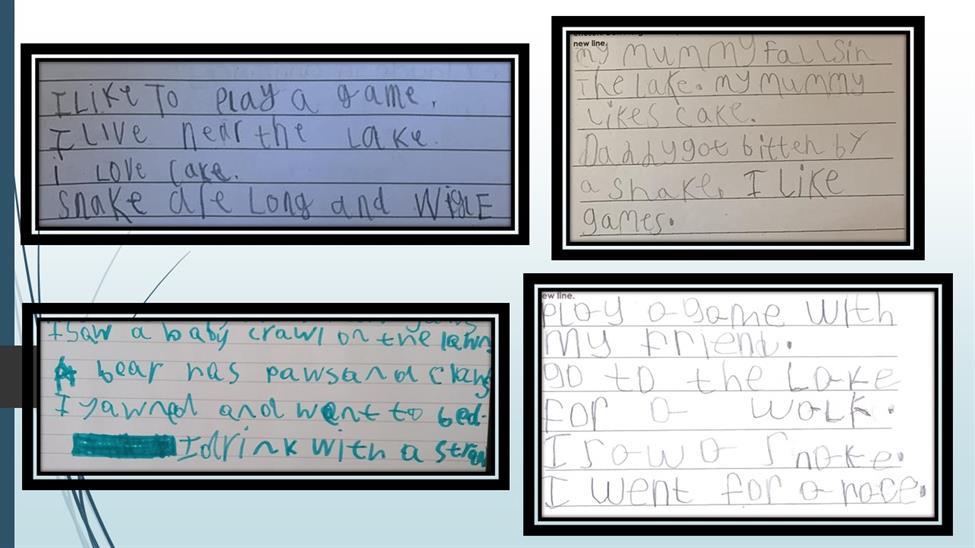 I LIKE To PLAY a game.
I LIVE near the LAKE.
i LOVE cake.
Snake are Long and WiglE
new line.
my mummy fallsin
the lake. my mummy
likes cake.
Daddy got bitten by
a snake. I LiKe
games.
I saw a baby crawl on the lawn
A bear has pawsand claws
I yawned and went to bed.
I drink with a straw
ew line.
PLay a game with
my friend.
go to the Lake
for a walk.
I saw a Snake.
I went for a race.